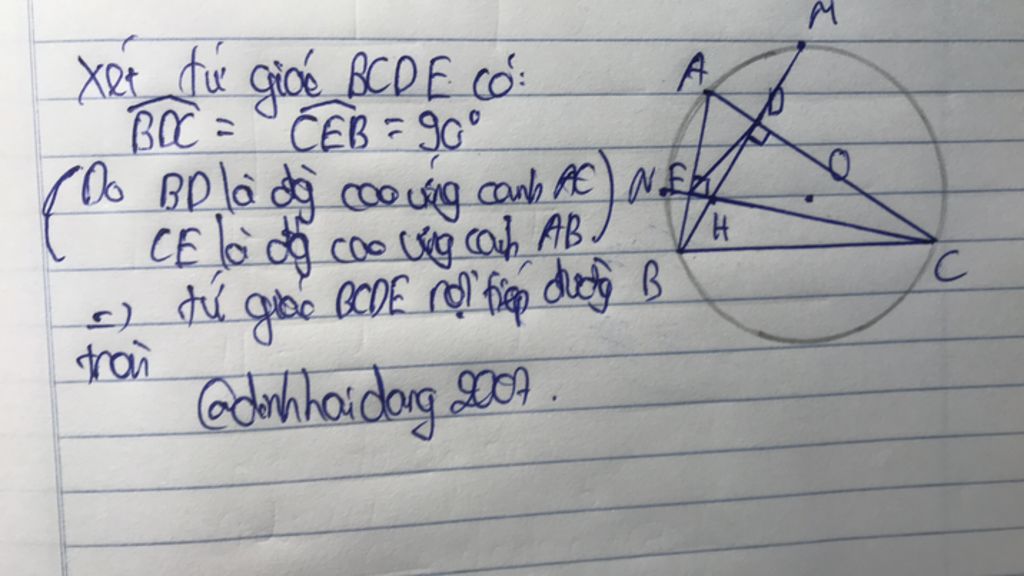 Xét tứ giác BCDE có:
BDC = CEB = 90°
(Do BD là đg cao ứng cạnh AC
CE là đg cao ứng cạnh AB)
=) tứ giác BCDE nội tiếp đường
tròn
@dinhhaidang 2007.
M
A
D
O
N E
H
B
C